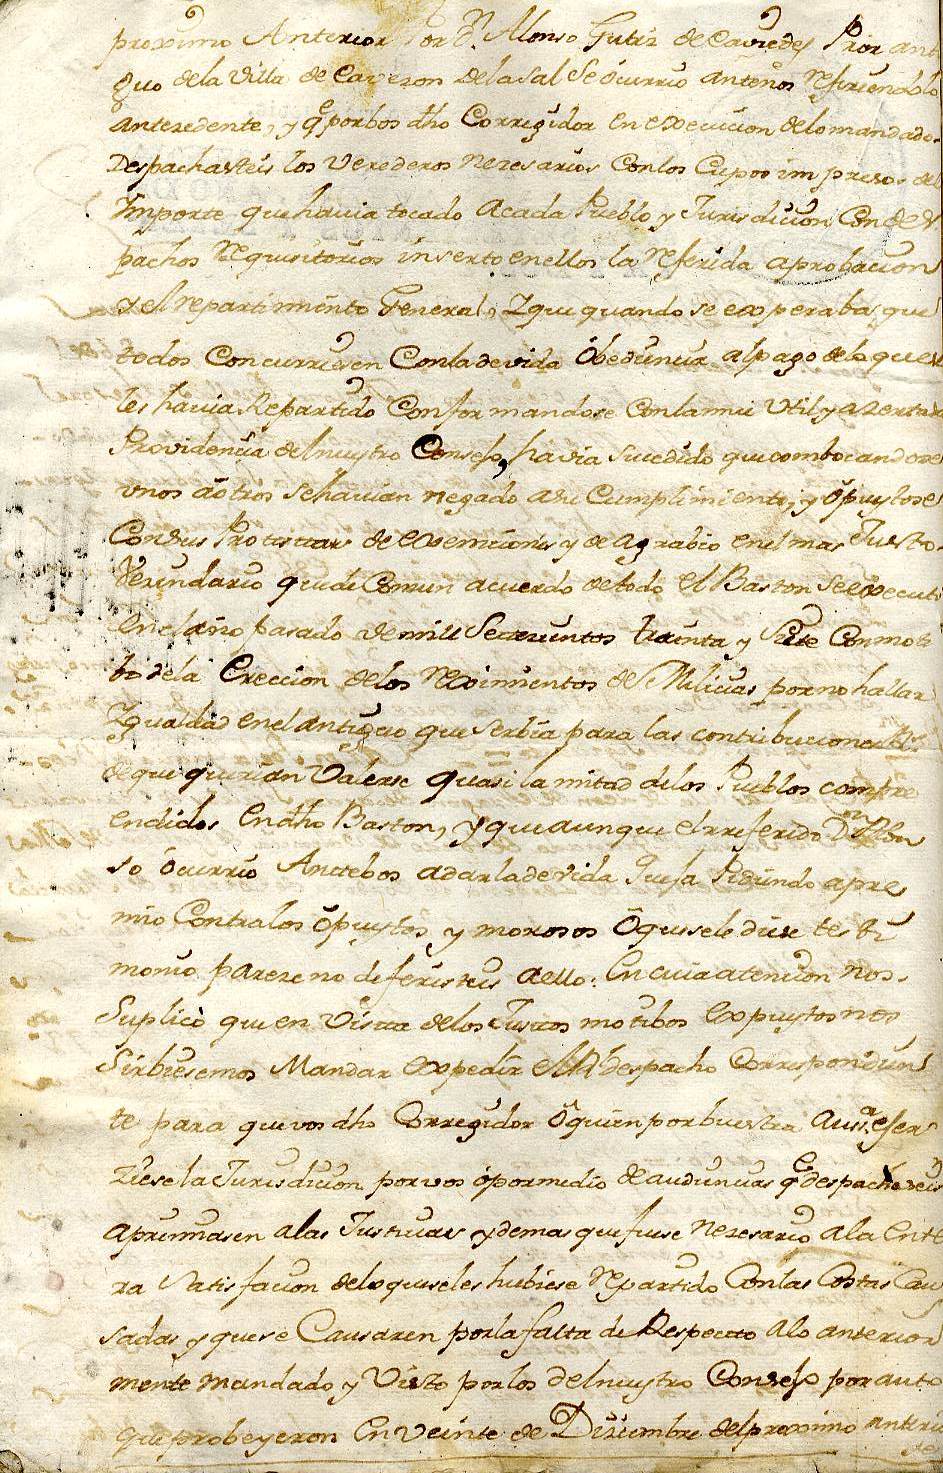 proximo Anterior por Dn. Alonso Gutirz de Caviedes Prior anti
guo dela Villa de Cavezon dela sal se ócurrio antenos Refiriendolo
antezedente, y qe porbos dho Corregidor en execucion delo mandado
Despachasteis los Verederos nezesarios Conlos Cupos impresos del
Importe que havia tocado acada Pueblo y Jurisdicion Con des
pachos Requisitorios inserto enellos la Referida aprobacion
y el repartimiento General, Y que quando se experaba que
todos Concurriesen Conla devida Óbediencia alpago delo que se
les havia Repartido Conformandose Conlamui Util y azertada
Providencia delnuestro Consejo, havia sucedido que combocandose
unos aótros se havian negado asu Cumplimiento, y ópuestose
Consus Protestas de exempciones y de agrabio enel mas Justo
Vezindario que de Comun acuerdo detodo el Baston se executo
enel año pasado demill Setezientos treinta y Siete Con moti
bo dela Ereccion delos Reximientos de Milicias por no hallar
Ygualdad enel antiguo que Serbia para las contribuciones Rs.
de que querian Valerse quasi la mitad delos Pueblos compre
endidos en dho Baston, y que aunque el rreferido Dn. Alon
so ócurrio Antebos adarladevida Queja Pidiendo apre
mio Contralos ópuestos y morosos Óquesele diese testi
monio pareze no deferisteis aello: En cuia atencion nos
Suplicò que en Vista delos Justos motibos Expuestos nos
Sirbiesemos Mandar expedir el Rl despacho Correspondien
te para que vos dho Corregidor Ôquien por buestra Ausa. ejer
ziese la Jurisdicion por vos ópormedio de audiencias qe despachaseis
apremiasen alas Justicias y demas que fuese Nezesario ala Ente
ra Satisfacion delo queseles hubiese Repartido Conlas Costas Cau
sadas y que se Causaren porla falta de Respecto alo anterior
mente mandado y Visto porlos delnuestro Consejo por auto
que probeyeron En Veinte de Diziembre delproximo anterior